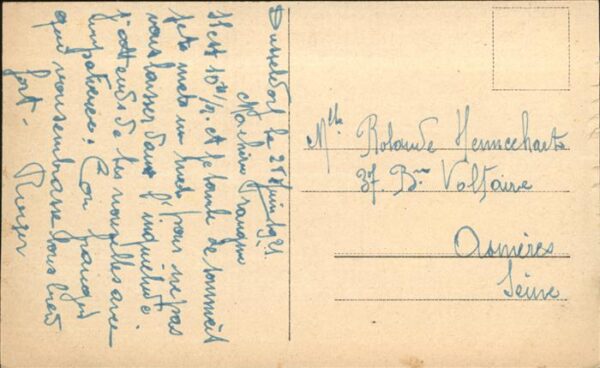 Dusseldorf le 21 Juin 1921
Il est 10h 1/2. et je tombe de sommeil
je te mets un mot pour ne pas
vous laisser dans l'inquiétude.
J'attends de tes nouvelles avec
impatience. Ton fiancé
qui vous embrasse tous bien
fort -
Roger
Mlle Rolande Hennechart
37. Bard Voltaire
Asnières
Seine